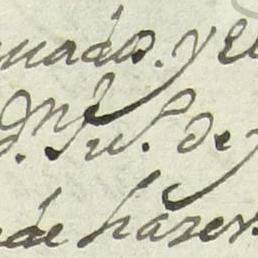 nuado. y El
D.n Ju.o de
de hazer